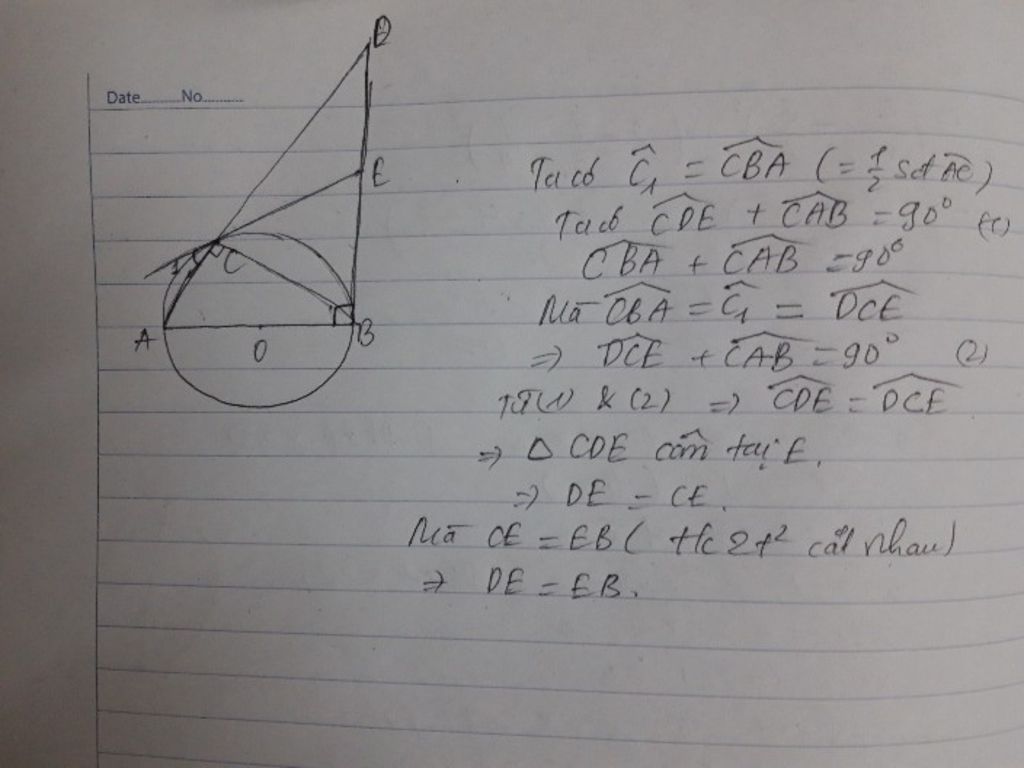 Date.........No..........
D
E
C
1
A
O
B
Ta có Ĉ₁ = CBA (= 1/2 sđ AC)
Ta có CDE + CAB = 90° (1)
CBA + CAB = 90°
Mà CBA = Ĉ₁ = DCE
=> DCE + CAB = 90° (2)
Từ (1) & (2) => CDE = DCE
=> Δ CDE cân tại E.
=> DE = CE.
Mà CE = EB ( t/c 2 t² cắt nhau)
=> DE = EB.